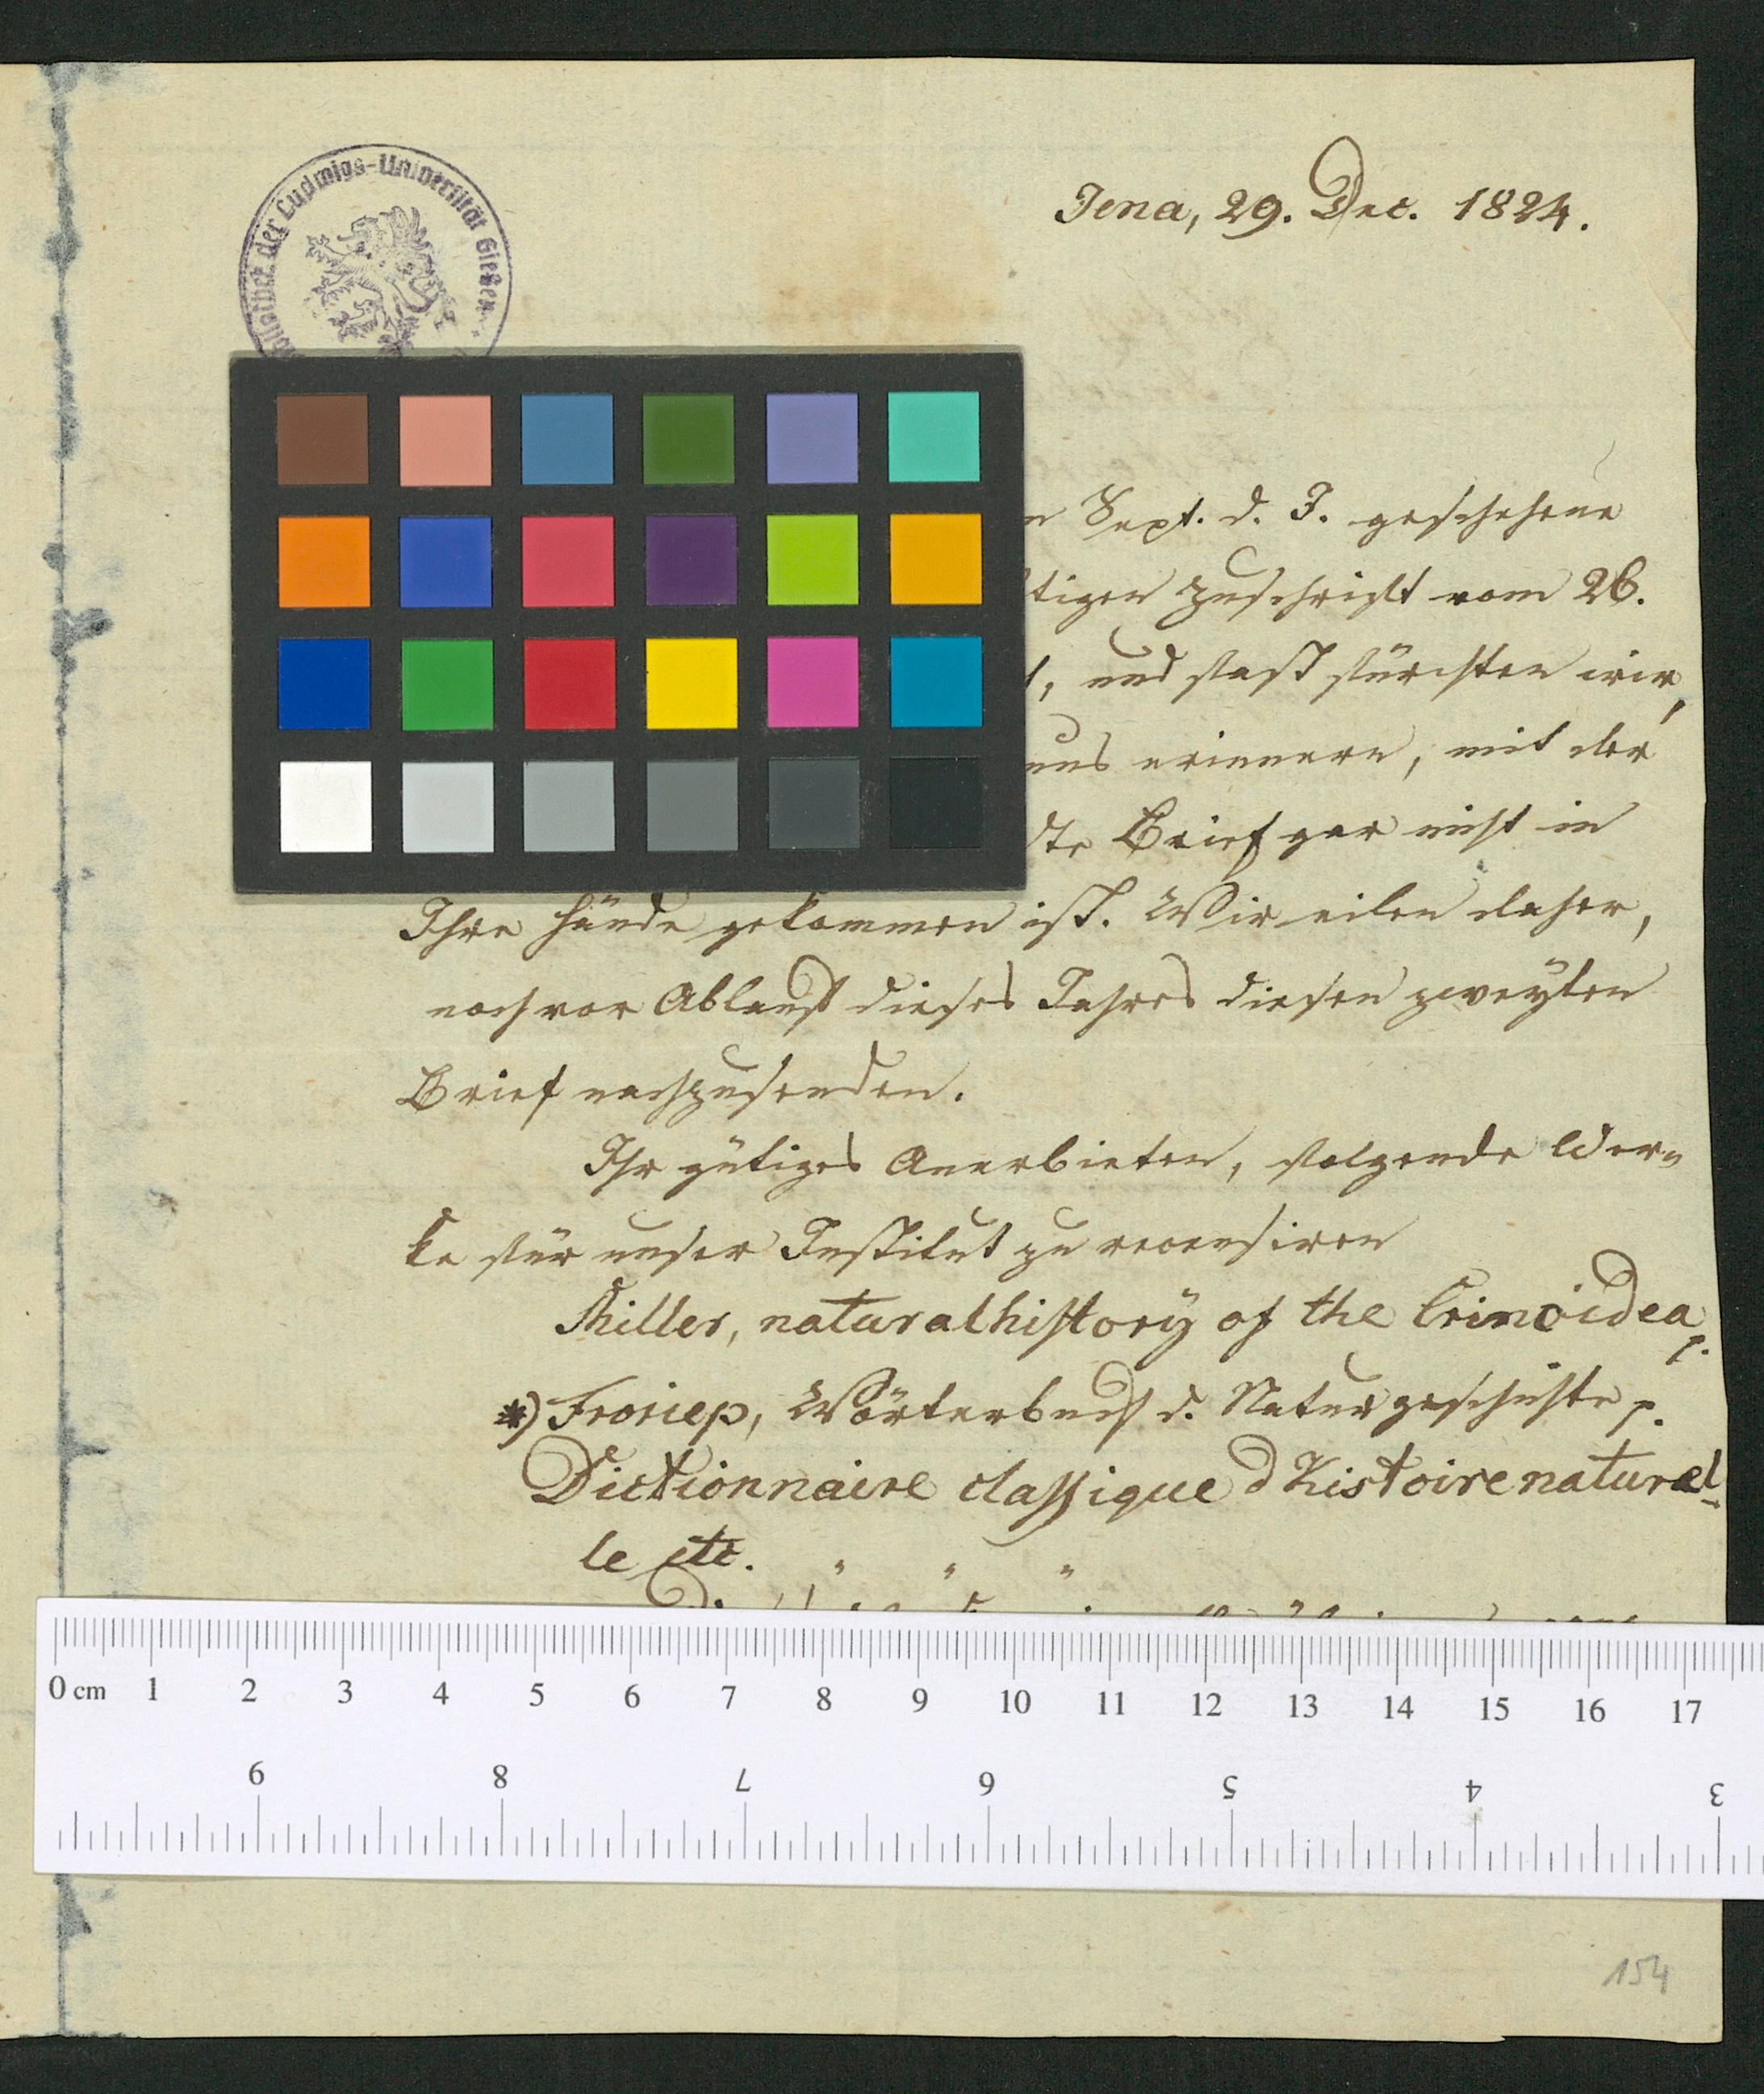 Bibliothek der Ludwigs-Universität Gießen
Jena, 29. Dec. 1824.
n Sept. d. J. geschehene
tigen Zuschrift vom 26.
t, und fast fürchten wir,
uns erinnern, mit der
dte Brief gar nicht in
Ihre Hände gekommen ist. Wir eilen daher,
noch vor Ablauf dieses Jahres diesen zweyten
Brief nachzusenden.
Ihr gütiges Anerbieten, folgende Wer-
ke für unser Institut zu recensiren
Miller, natural history of the Crinoidea
p.
*) Froriep, Wörterbuch d. Naturgeschichte p.
Dictionnaire classique d'histoire naturel-
le etc. " " "
0 cm 1 2 3 4 5 6 7 8 9 10 11 12 13 14 15 16 17
9 8 7 6 5 4 3
154